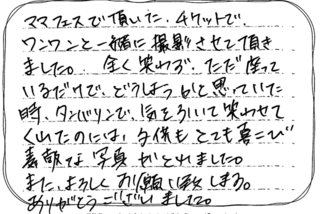 ママフェスで頂いた、チケットで、
ワンワンと一緒に撮影させて頂き
ました。 全く笑わず、ただ座って
いるだけで、どうしようかと思っていた
時、タンバリンで、気をひいて笑わせて
くれたのには、子供もとても喜こび
素敵な写真がとれました。
また、よろしくお願い致します。
ありがとうございました。